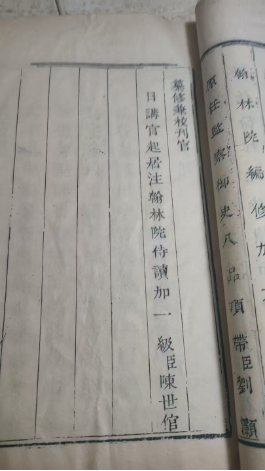 翰林院編修加
原任監察御史八品頂帶臣劉灝
纂修兼校刊官
日講官起居注翰林院侍讀加一級臣陳世倌